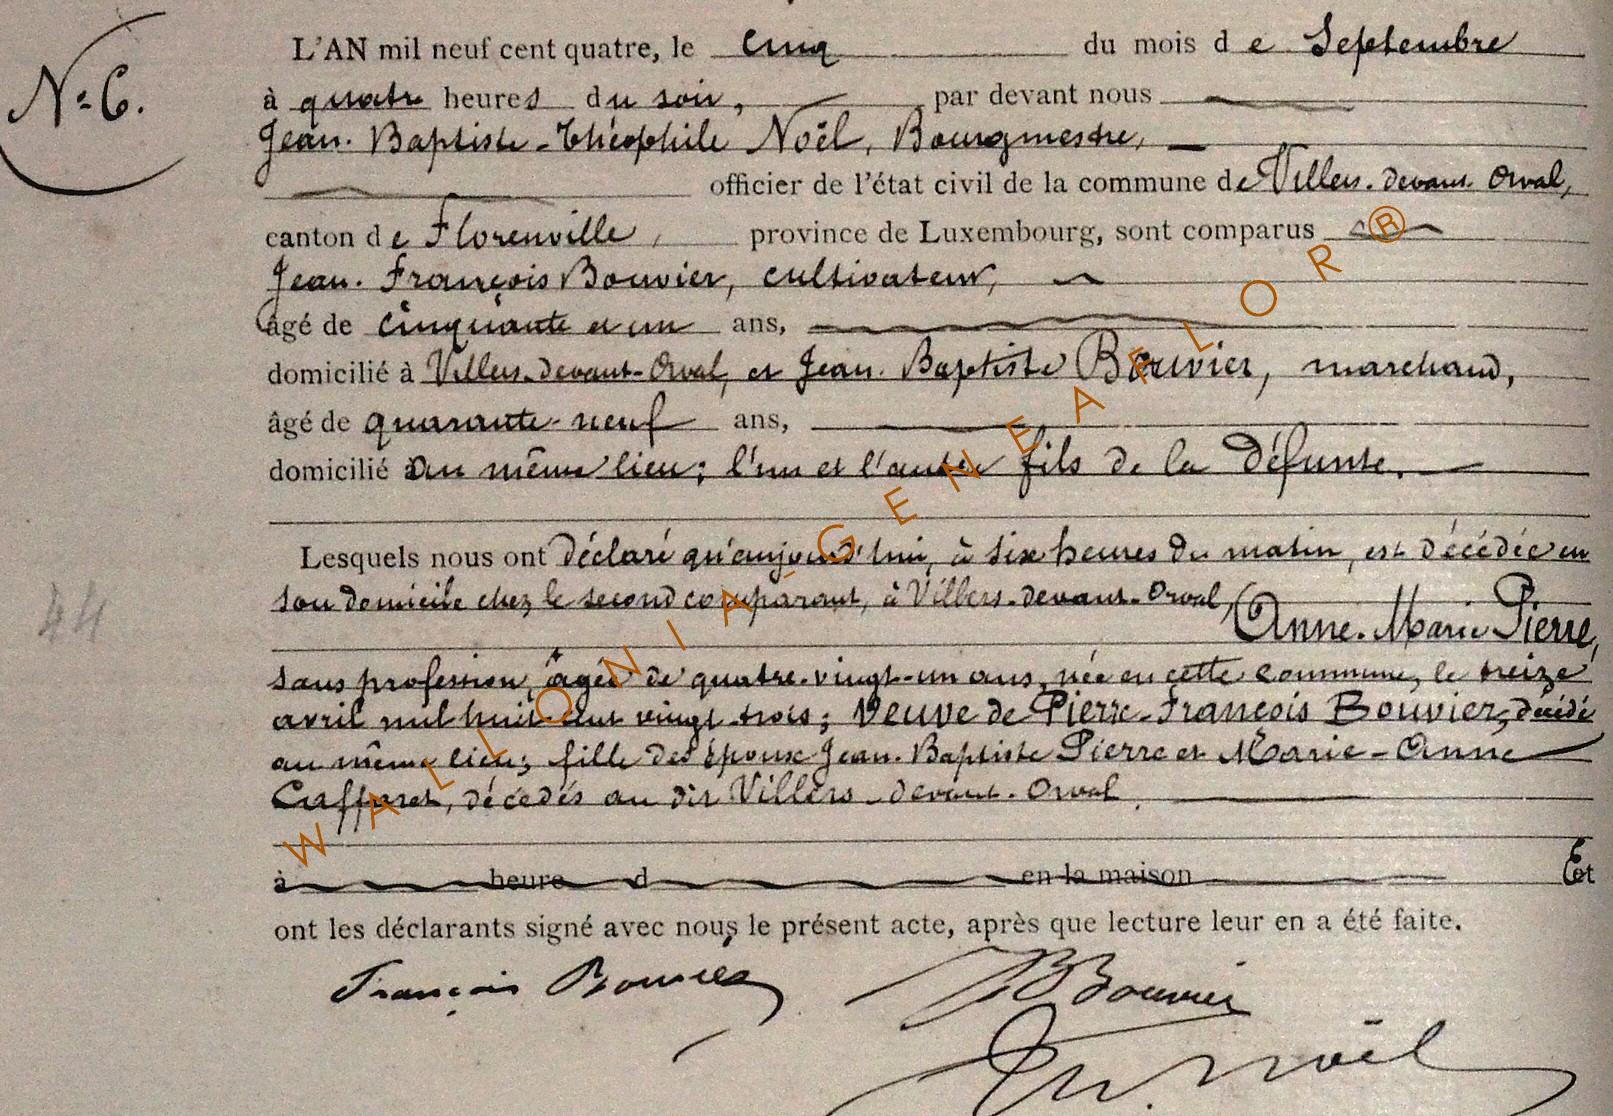 N° 6.
L'AN mil neuf cent quatre, le cinq du mois de Septembre
à quatre heures du soir, par devant nous
Jean-Baptiste-Théophile Noël, Bourgmestre,
officier de l'état civil de la commune de Villers-devant-Orval,
canton de Florenville, province de Luxembourg, sont comparus
Jean-François Bouvier, cultivateur,
âgé de cinquante et un ans,
domicilié à Villers-devant-Orval, et Jean-Baptiste Bouvier, marchand,
âgé de quarante-neuf ans,
domicilié au même lieu; l'un et l'autre fils de la défunte.
Lesquels nous ont déclaré qu'aujourd'hui, à six heures du matin, est décédée en
son domicile chez le second comparant, à Villers-devant-Orval,
Anne-Marie Pierre,
sans profession, âgée de quatre-vingt-un ans, née en cette commune, le treize
avril mil huit cent vingt trois; Veuve de Pierre-François Bouvier, décédé
au même lieu; fille des époux Jean-Baptiste Pierre et Marie-Anne
Cafferet, décédés au dit Villers-devant-Orval.
44
à heure d en la maison Et
ont les déclarants signé avec nous le présent acte, après que lecture leur en a été faite.
François Bouvier JB Bouvier
Th. Noël
WALLONIA-GENEAFLOR®